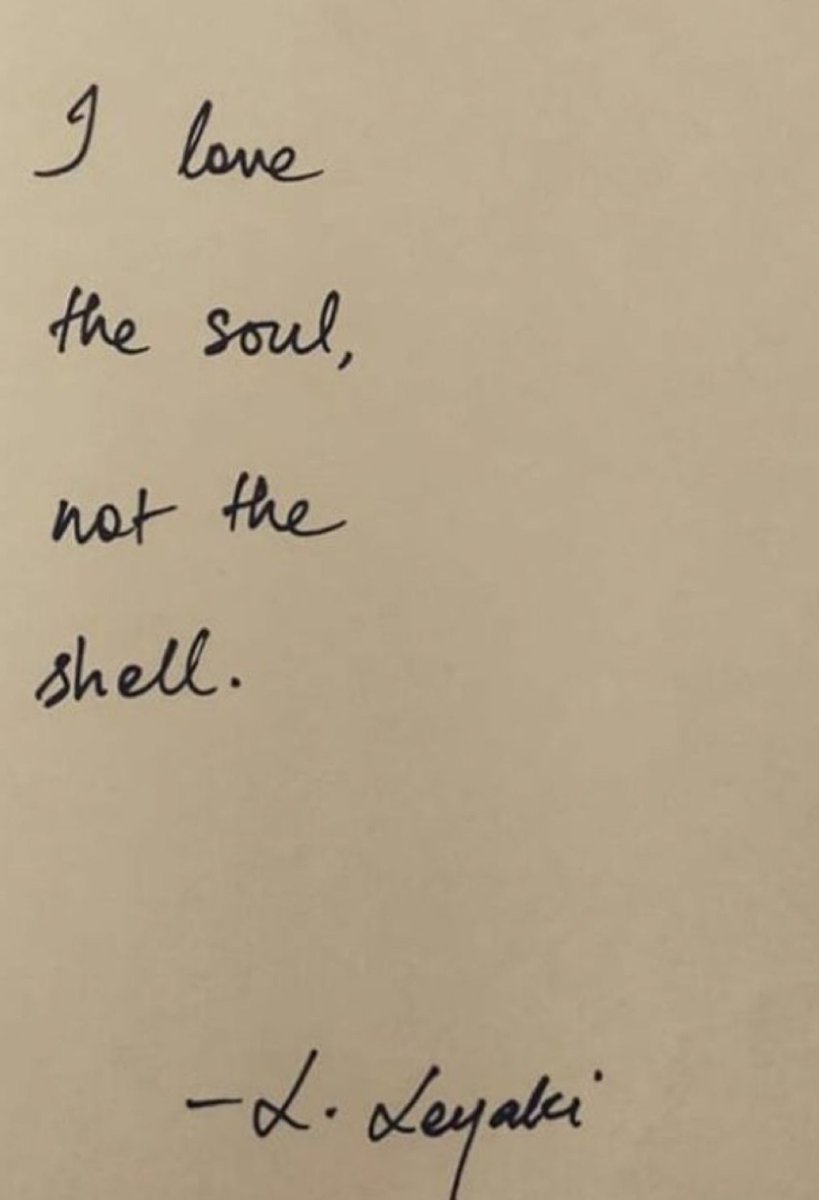 I love
the soul,
not the
shell.
-L. Leyaki